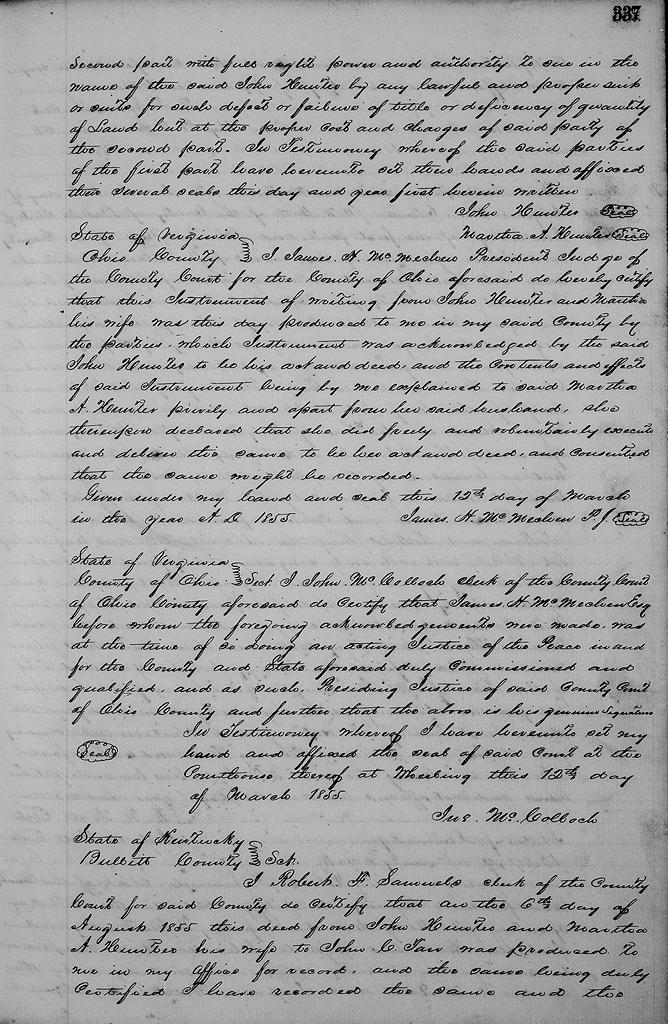 337
Second part with full right power and authority to sue in the
name of the said John Hunter by any lawful and proper suit
or suits for such defect or failure of title or deficiency of quantity
of Land but at the proper cost and charges of said party of
the second part. In Testimoney whereof the said parties
of the first part have hereunto set their hands and affixed
their several seals this day and year first herein written
John Hunter Seal
Martha A. Hunter Seal
State of Virginia
Ohio County I James. H. Mc.mechen President Judge of
the County Court for the County of Ohio aforesaid do hereby certify
that this Instrument of writing from John Hunter and Martha
his wife was this day produced to me in my said County by
the parties. which Instrument was acknowledged by the said
John Hunter to be his act and deed, and the Contents and effects
of said Instrument being by me explained to said Martha
A. Hunter privily and apart from her said husband. she
thereupon declared that she did freely and voluntarily execute
and deliver the same to be her act and deed, and Consented
that the same might be recorded.
Given under my hand and seal this 12th day of March
in the year A. D. 1855. James. H. Mc mechen P. J. Seal
State of Virginia
County of Ohio Sct I. John. Mc. Colloch clerk of the County Court
of Ohio County aforesaid do Certify that James. H. Mc Mechen Esq
before whom the foregoing acknowledgements were made. was
at the time of so doing an acting Justice of the Peace in and
for the County and State aforesaid duly Commissioned and
qualified. and as such. Presiding Justice of said County Court
of Ohio County and further that the above is his genuine Signature
In Testimoney whereof I have hereunto set my
Seal hand and affixed the seal of said Court at the
Courthouse thereof at Wheeling this 12th day
of March 1855.
Jno. Mc. Colloch
State of Kentucky
Bullitt County Sct.
I Robert. F. Samuels clerk of the County
Court for said County do Certify that on the 6th day of
August 1855 this deed from John Hunter and Martha
A. Hunter his wife to John. C. was produced to
me in my office for record. and the same being duly
Certified I have recorded the same and the